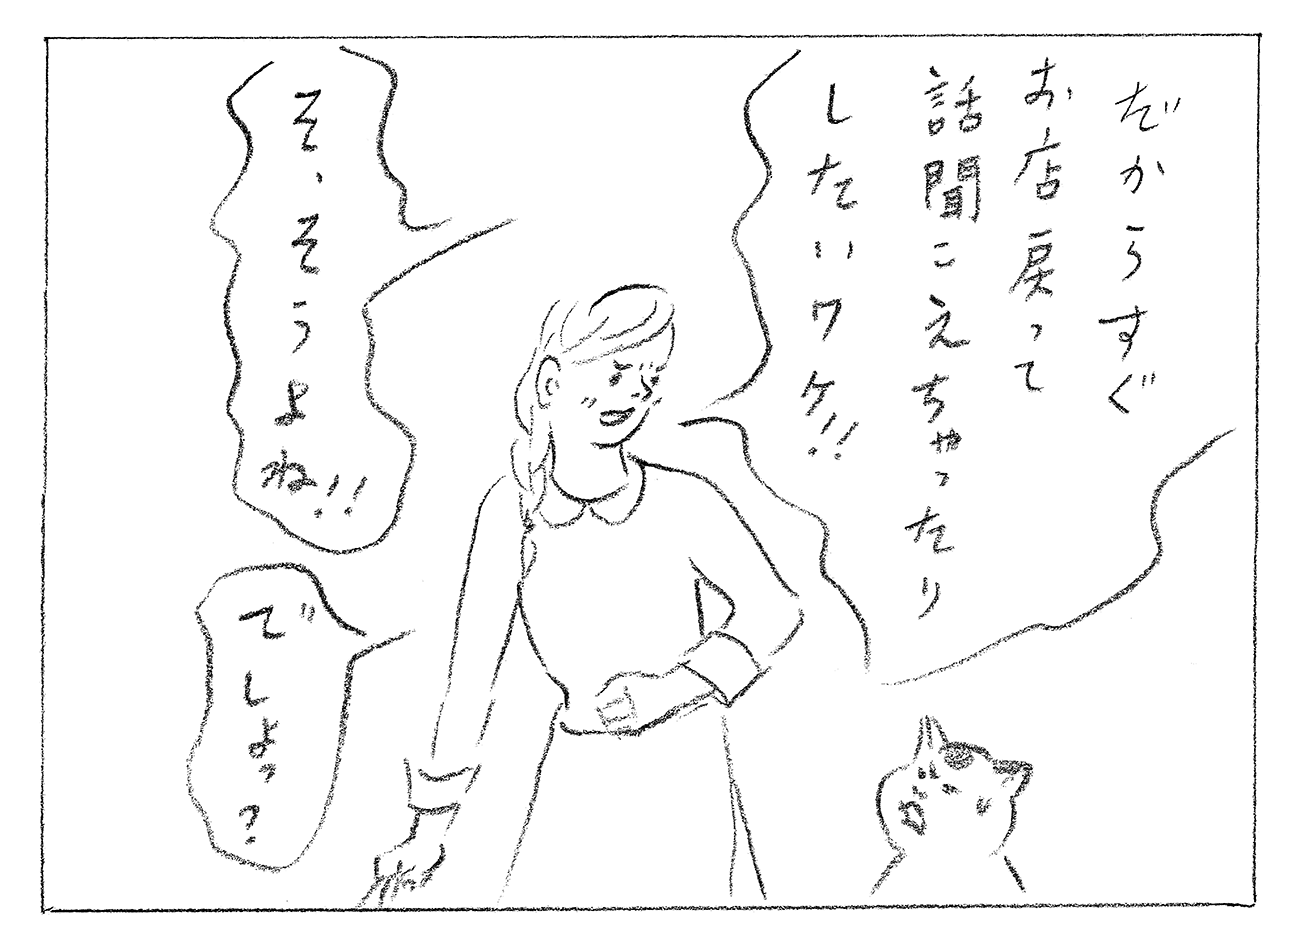 だからすぐ
お店戻って
話聞こえちゃったり
したいワケ!!
そ、そうよね!!
でしょっ?